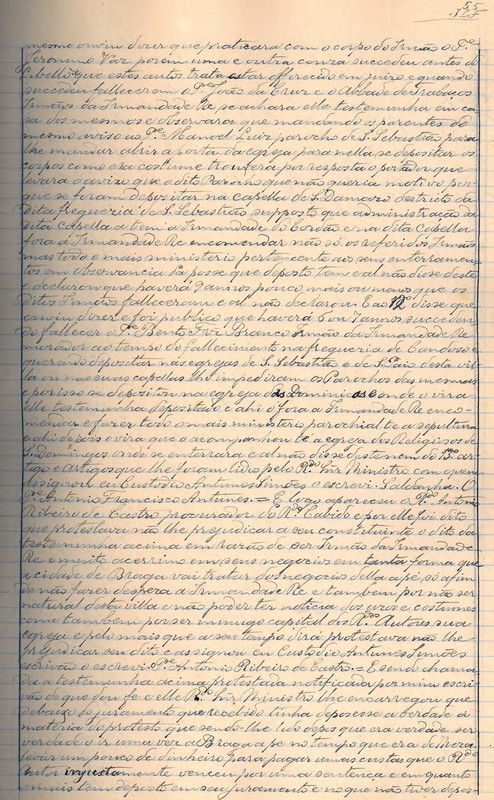 mesmo ouvira dizer que praticara com o corpo do Irmão o P.e
Jeronimo Vaz porem uma e outra couza succedeu antes do
Libello que estes autos trata estar offerecido em juizo e quando
succedeu fallecerem o P.e João da Cruz e o Abbade de
Irmãos da Irmandade Re se achara elle testemunha em ca
sa dos mesmos e observara que mandando os parentes do
mesmo aviso ao P.e Manoel Luis parocho de S. Sebastião para
lhe mandar abrir a porta da egreja para nella se depositar os
corpos como era costume trouxera por resposta o portador que
levara o aviso que o dito Parocho que não queria motivo por
que se foram depositar na Capella de S. Damazo destricto da
dita freguezia de S. Sebastião supposto que administração da
dita capella a tem a Irmandade do Cordão e na dita Capella
fora a Irmandade Re encomendar não só os referidos Irmãos
mas todo o mais ministerio pertencente aos seus enterramen
tos em observancia da posse que deposto tem e al não disse deste
e declarou que haverá 9 annos pouco mais ou menos que os
ditos Irmãos falleceram e al não declarou E ao 12º disse que
ouvira dizer e foi publico que haverá 6 ou 7 annos succeden
do fallecer o P.e Bento Franco Irmão da Irmandade Re
morador ao tempo do fallecimento na freguezia de Candoso e
querendo depositar nas egrejas de S. Sebastião e de S. Paio desta vil
la ou nas suas capellas lho impediram os Parochos das mesmas
e por isso se depositou na egreja das Dominicas onde o vira
elle testemunha depositado e ahi o fora a Irmandade Re enco
mendar e fazer todo o mais ministerio parochial te a sepultura
e ahi depois o vira que o acompanhou te a egreja dos Religiosos de
S. Domingos onde se enterrara e al não disse deste nem do 13º ar
tigo e Artigos que lhe foram lidos pelo R.do Snr Ministro com quem
assignou eu Custodio Antunes Simões o escrevi. Saldanha. O
P.e Antonio Francisco Antunes. = E logo appareceu o R.do Antonio
Ribeiro de Castro procurador do R.do Cabido e por elle foi dito
que protestava não lhe prejudicar a seu constituinte o dito da
testemunha acima em razão de ser Irmão da Irmandade
Re e muito acerrimo em seus negocios em tanta forma que
a cidade de Braga vai tratar dos negocios della a pé só afim
de não fazer despeza a Irmandade Re e tambem por não ser
natural desta villa e não poder ter noticia dos uzos e costumes
como tambem por ser inimigo capital dos R.dos Autores sua
egreja e pelo mais que a seu tempo dirá protestava não lhe
prejudicar seu dito e assignou eu Custodio Antunes Simões
escrivão o escrevi. P.e Antonio Ribeiro de Castro. = E sendo chama
da a testemunha acima protestada notificada por mim escri
vão de que dou fé e elle R.do Snr Ministro lhe encarregou que
debaixo do juramento que recebido tinha depozesse a verdade a
materia do protesto que sendo-lhe lido depoz que era verdade ser
verdade o ir uma vez a Braga a pé no tempo que era de
levar um pouco de dinheiro para pagar umas custas que o R.do
Autor injustamente venceu por uma sentença e em quanto
o mais tem deposto em seu juramento e no que não tiver depos